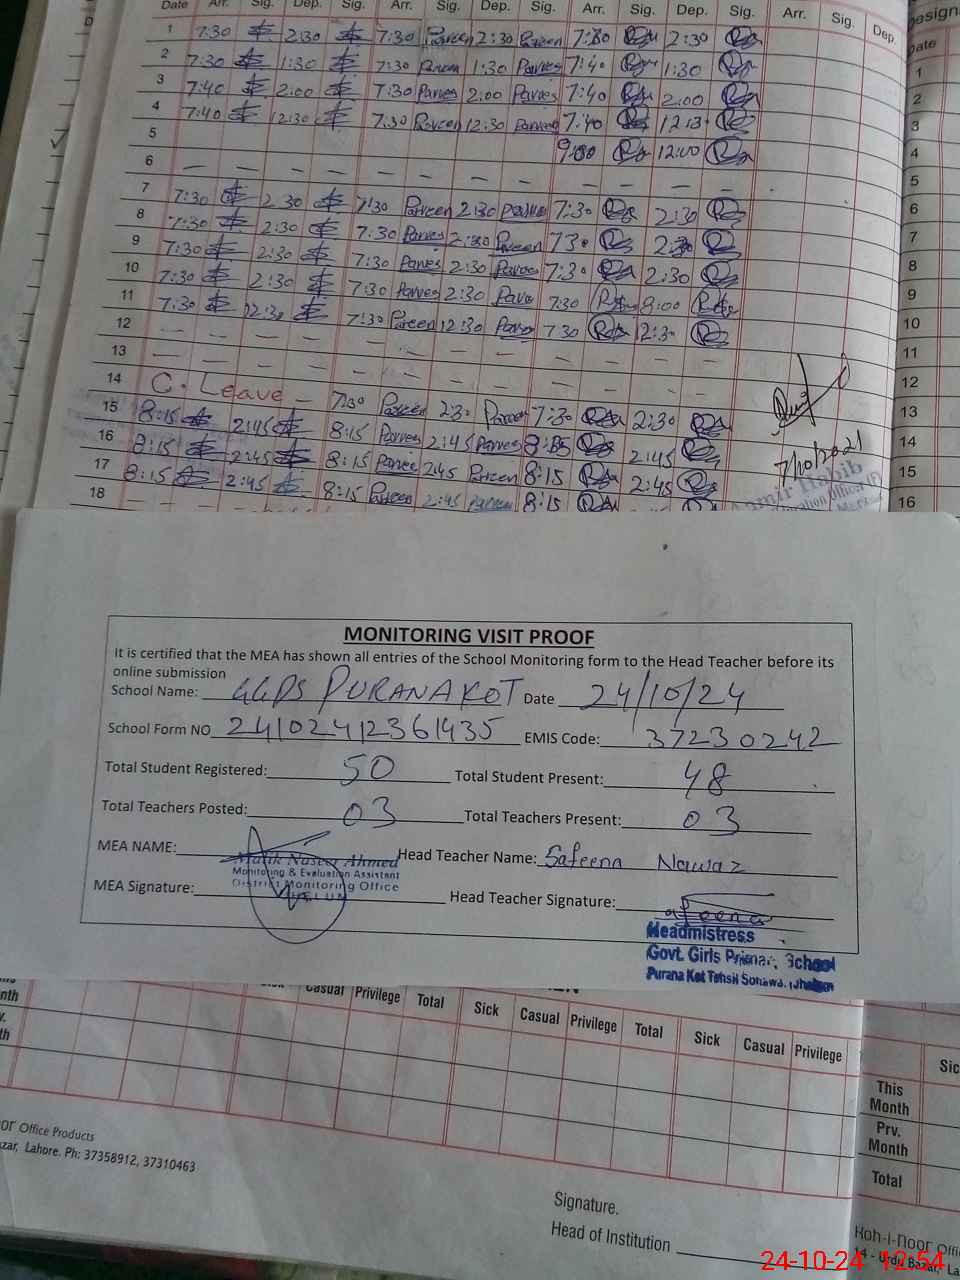 Date Arr. Sig. Dep. Sig. Arr. Sig. Dep. Sig. Arr. Sig. Dep. Sig. Arr. Sig. Dep.
Date
1 7:30 2:30 7:30 Parveen 2:30 Parveen 7:30 2:30
2 7:30 1:30 7:30 Parveen 1:30 Parveen 7:40 1:30
3 7:40 2:00 7:30 Parveen 2:00 Parveen 7:40 2:00
4 7:40 12:30 7:30 Parveen 12:30 Parveen 7:40
5 12:00
6 — — — — — — — — — — — —
7 7:30 2 30 7:30 Parveen 2:30 Parveen 7:30 2:30
8 7:30 2:30 7:30 Parveen 2:30 Parveen 7 30 2:30
9 7:30 2:30 7:30 Parveen 2:30 Parveen 7:30 2:30
10 7:30 2:30 7:30 Parveen 2:30 7:30
11 7:30 12:30 7:30 Parveen 12:30 7 30 12:30
12 — — — — — — — — — — — —
13 — — — — — — — — — — — —
14 C. Leave — 7:30 Parveen 2:30 Parveen 7:30 2:30
15 8:15 2:45 8:15 Parveen 2:45 Parveen 2:45
16 8:15 2:45 8:15 Parveen 2:45 Parveen 8:15 2:45
17 8:15 2:45 8:15 Parveen 2:45 8:15
18
1
2
3
4
5
6
7
8
9
10
11
12
13
14
15
16
7/10/2021
Habib
MONITORING VISIT PROOF
It is certified that the MEA has shown all entries of the School Monitoring form to the Head Teacher before its
online submission
School Name: GGPS PURANAKOT Date 24/10/24
School Form NO 24102412361435 EMIS Code: 37230242
Total Student Registered: 50 Total Student Present: 48
Total Teachers Posted: 03 Total Teachers Present: 03
MEA NAME: Malik Naseer Ahmed Head Teacher Name: Safeena Nawaz
Monitoring & Evaluation Assistant
District Monitoring Office
MEA Signature: Head Teacher Signature: afeena
Headmistress
Govt. Girls Primary School
Purana Kot Tehsil Sohawa
Casual Privilege Total Sick Casual Privilege Total Sick Casual Privilege
This Month
Prv. Month
Total
Office Products
Lahore. Ph: 37358912, 37310463
Signature.
Head of Institution
Koh-i-noor
14 - Urdu Bazar,
24-10-24 12:54